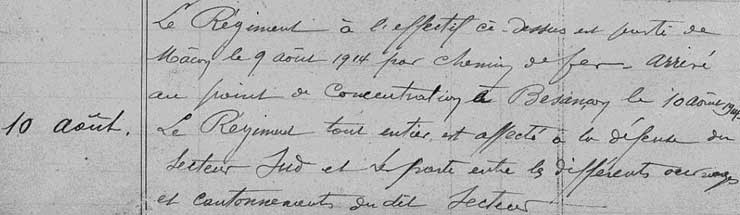 Le Régiment à l'effectif ci-dessus est parti de
Mâcon le 9 août 1914 par chemin de fer - arrivé
au point de Concentration à Besançon le 10 août 1914.
10 août.
Le Régiment tout entier est affecté à la défense du
Secteur Sud et se porte entre les différents ouvrages
et cantonnements du dit Secteur